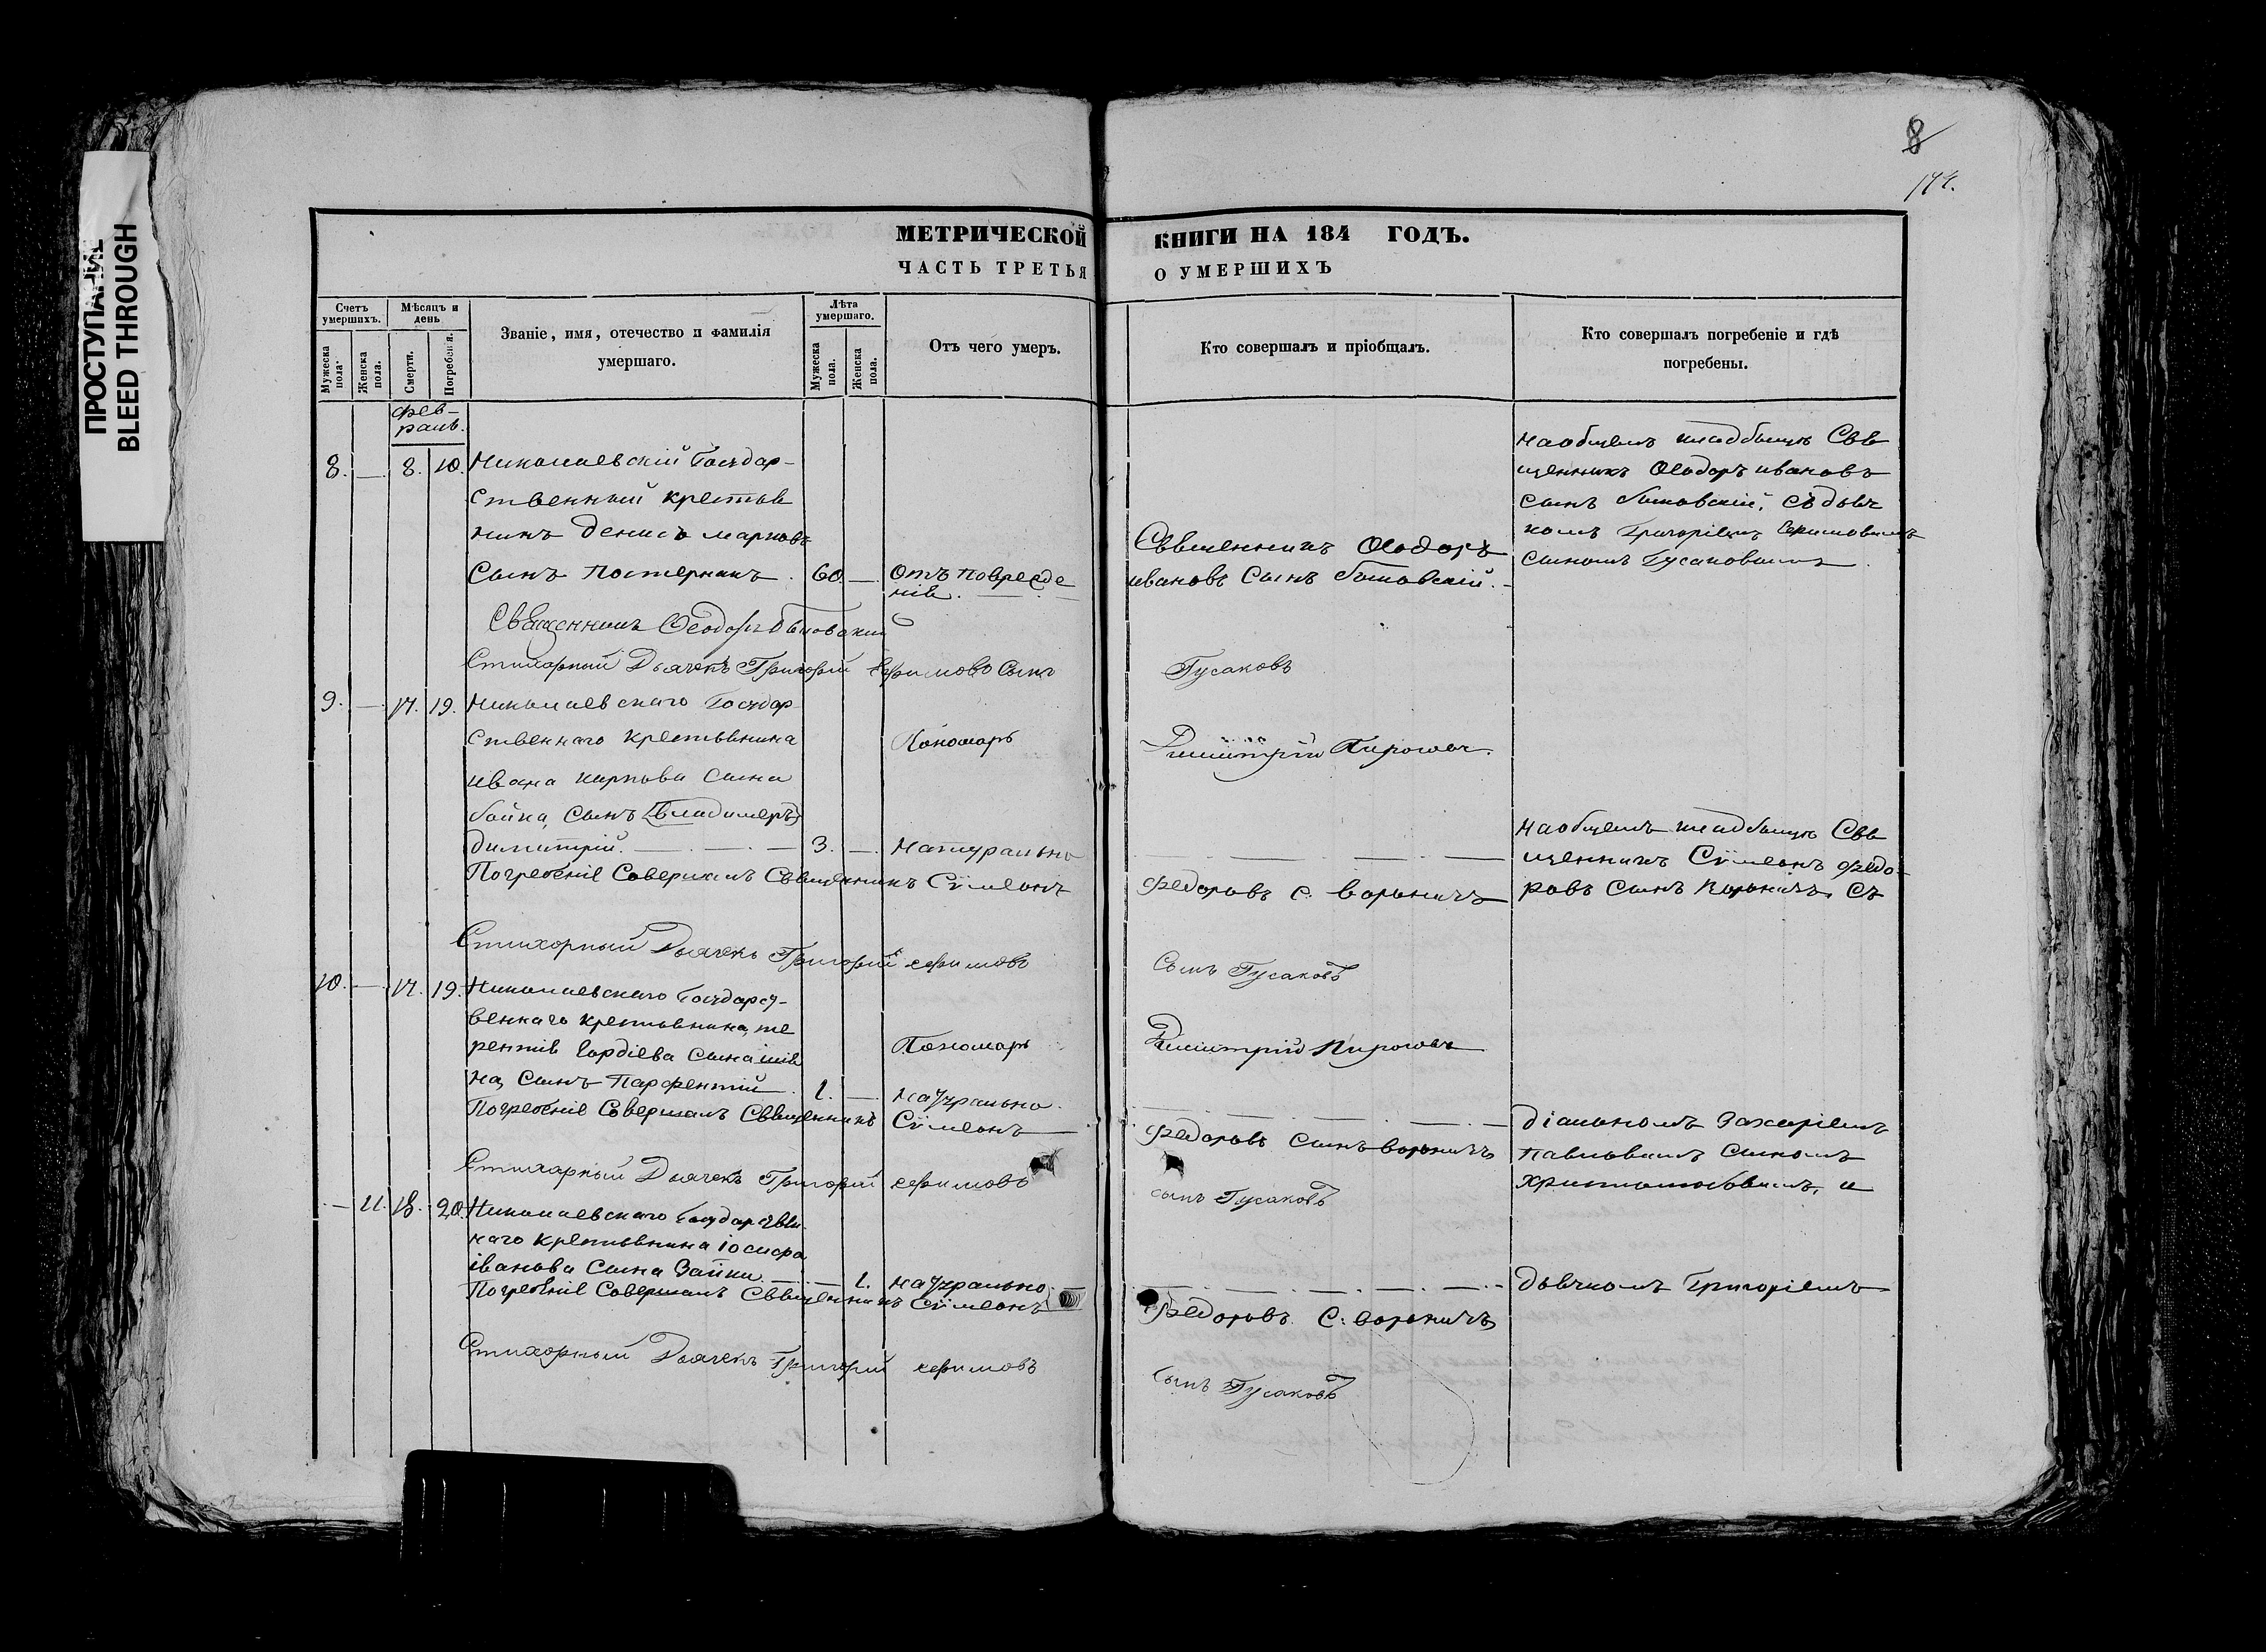 ПРОСТУПАНИЕ
BLEED THROUGH
8
174.
МЕТРИЧЕСКОЙ КНИГИ НА 184 ГОДЪ.
ЧАСТЬ ТРЕТЬЯ О УМЕРШИХЪ
Счетъ умершихъ.
Мужеска пола.
Женска пола.
Мѣсяцъ и день
Смерти.
Погребенія.
Званіе, имя, отечество и фамилія
умершаго.
Лѣта умершаго.
Мужеска пола.
Женска пола.
Отъ чего умеръ.
Кто совершалъ и пріобщалъ.
Кто совершалъ погребеніе и гдѣ
погребены.
фев-
раль.
8. — 8. 10. Николаевскій Государ-
ственный крестья
нинъ Денисъ марковъ
Сынъ Пастернакъ. 60. — Отъ повреж де
нія.
Священникъ Ѳеодоръ
ивановъ Сынъ
на общемъ кладбищѣ Свя
щенникъ Ѳеодоръ ивановъ
сынъ съ дьяч
комъ Григоріемъ Ефимовымъ
сыномъ Гусаковымъ
Священникъ Ѳеодоръ
Стихарный Дьячекъ Григорій Ефимовъ Сынъ Гусаковъ
Пономарь Димитрій
9. — 17. 19. Николаевскаго Государ
ственнаго крестьянина
ивана карпова сына
бойка, сынъ (Владимеръ)
димитрій. 3. — Натурально
на общемъ кладбищѣ Свя
щенникъ Сѵмеонъ федо-
ровъ сынъ Вороничъ, Съ
Погребеніе Совершалъ Священникъ Сѵмеонъ федоровъ с. Вороничъ
Стихорный Дьячекъ Григорій ефимовъ Сынъ Гусаковъ
Пономарь Димитрій
10. — 17. 19. Николаевскаго Государст-
веннаго крестьянина, те
рентія Гордіева сына
на, сынъ Парфентій 1. — натурально.
діакономъ Захаріемъ
Павловымъ сыномъ
и
Погребеніе Совершалъ Священникъ Сѵмеонъ федоровъ сынъ Вороничъ
Стихарный Дьячекъ Григорій ефимовъ сынъ Гусаковъ
— 11. 18. 20. Николаевскаго Государствен
наго крестьянина іосифа
іванова сына Зайки 1. натурально.
дьячкомъ Григоріемъ
Погребеніе Совершалъ Священникъ Сѵмеонъ федоровъ. С. Вороничъ
Стихорный Дьячекъ Григорій ефимовъ сынъ Гусаковъ